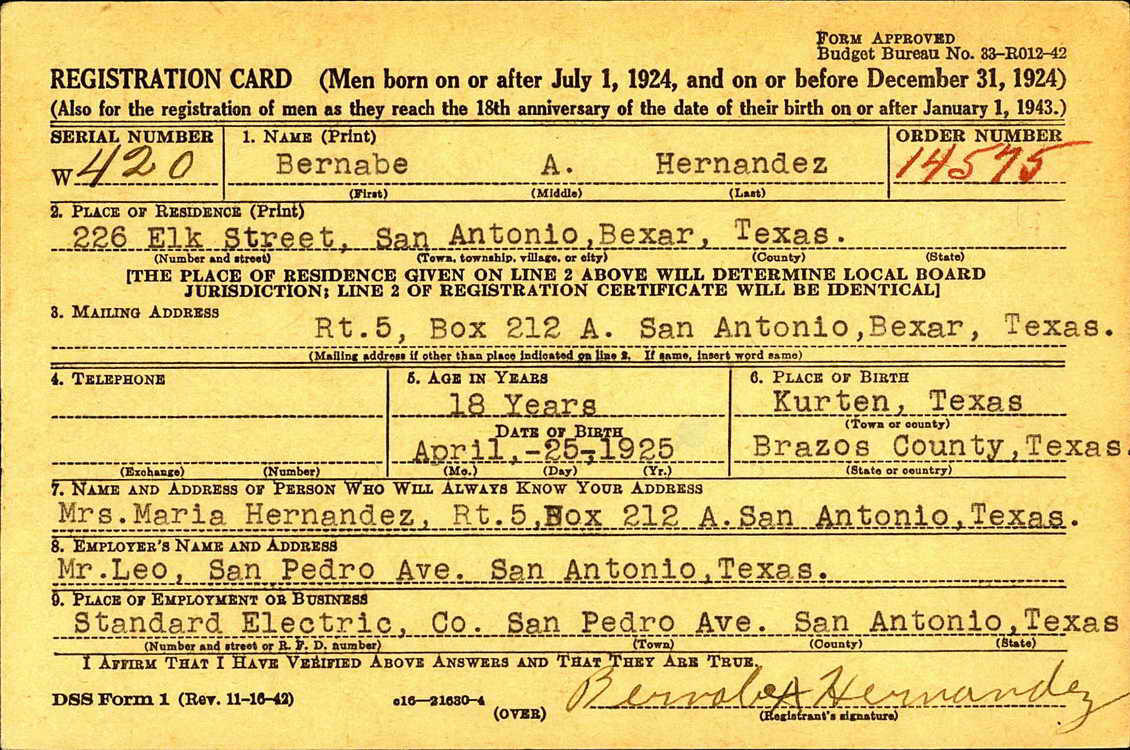 FORM APPROVED
Budget Bureau No. 33-R012-42
REGISTRATION CARD (Men born on or after July 1, 1924, and on or before December 31, 1924)
(Also for the registration of men as they reach the 18th anniversary of the date of their birth on or after January 1, 1943.)
SERIAL NUMBER 1. NAME (Print) ORDER NUMBER
W 420 Bernabe A. Hernandez 14575
(First) (Middle) (Last)
2. PLACE OF RESIDENCE (Print)
226 Elk Street, San Antonio,Bexar, Texas.
(Number and street) (Town, township, village, or city) (County) (State)
[THE PLACE OF RESIDENCE GIVEN ON LINE 2 ABOVE WILL DETERMINE LOCAL BOARD
JURISDICTION; LINE 2 OF REGISTRATION CERTIFICATE WILL BE IDENTICAL]
3. MAILING ADDRESS
Rt.5, Box 212 A. San Antonio,Bexar, Texas.
(Mailing address if other than place indicated on line 2. If same, insert word same)
4. TELEPHONE 5. AGE IN YEARS 6. PLACE OF BIRTH
18 Years Kurten, Texas
DATE OF BIRTH (Town or county)
April,-25-,1925 Brazos County,Texas.
(Exchange) (Number) (Mo.) (Day) (Yr.) (State or country)
7. NAME AND ADDRESS OF PERSON WHO WILL ALWAYS KNOW YOUR ADDRESS
Mrs.Maria Hernandez, Rt.5,Box 212 A.San Antonio,Texas.
8. EMPLOYER'S NAME AND ADDRESS
Mr.Leo, San Pedro Ave. San Antonio,Texas.
9. PLACE OF EMPLOYMENT OR BUSINESS
Standard Electric, Co. San Pedro Ave. San Antonio,Texas
(Number and street or R. F. D. number) (Town) (County) (State)
I AFFIRM THAT I HAVE VERIFIED ABOVE ANSWERS AND THAT THEY ARE TRUE.
DSS Form 1 (Rev. 11-16-42) c16-21630-4 Bernabe A Hernandez
(OVER) (Registrant's signature)